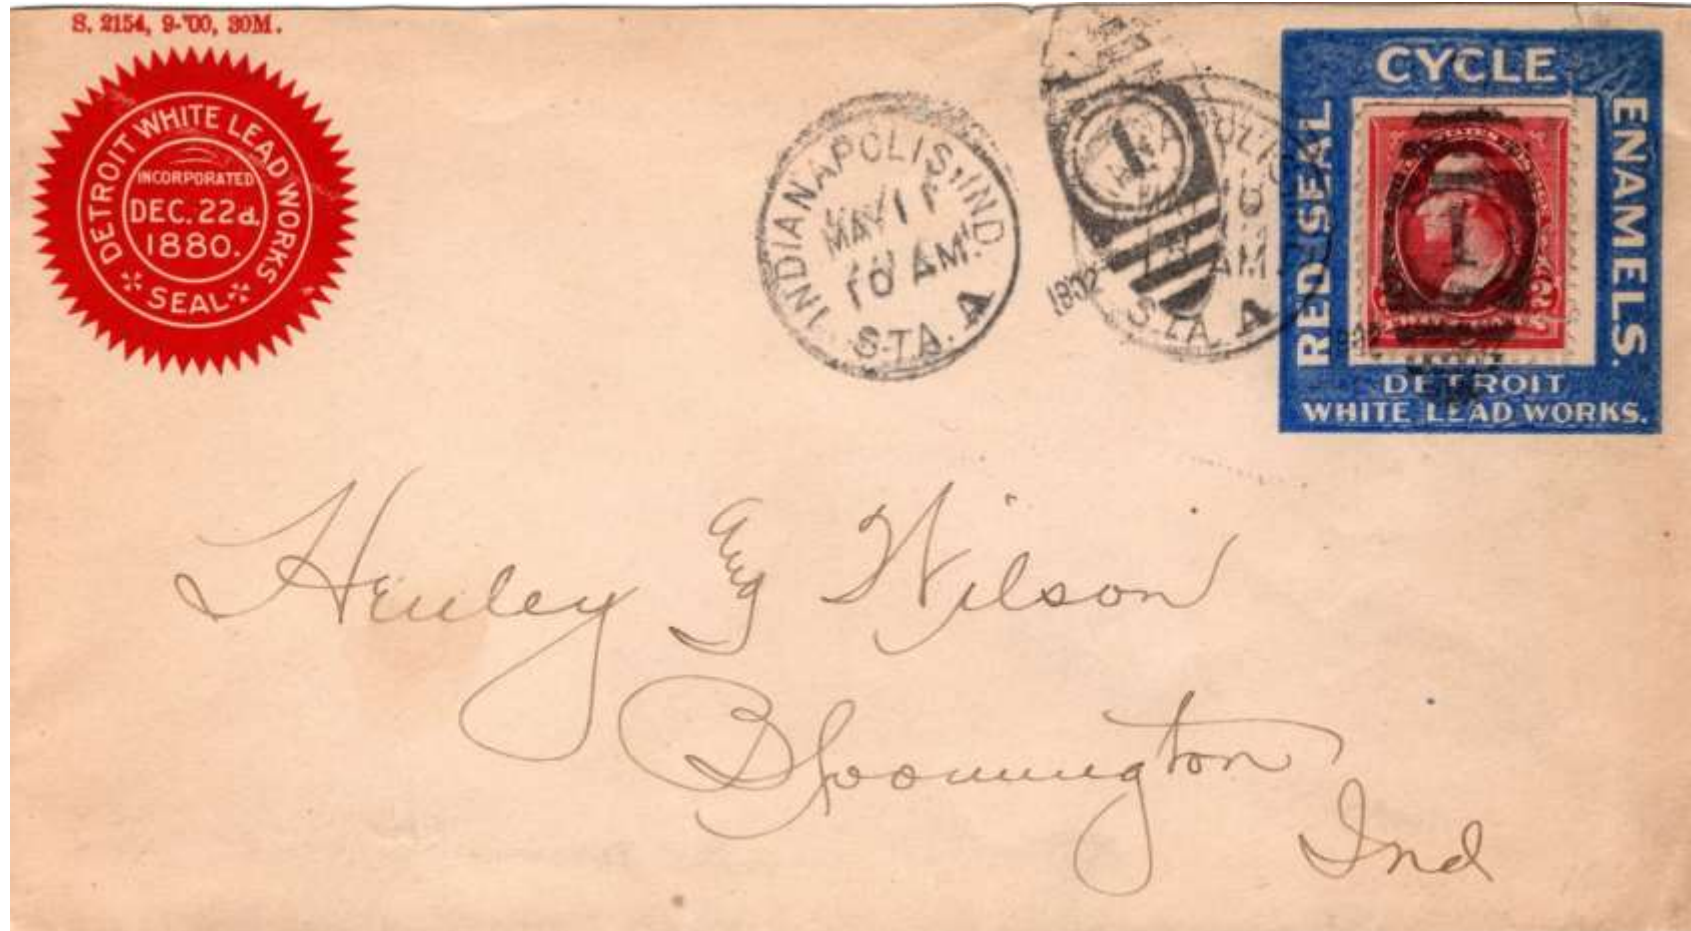 S. 2154, 9-'00, 30M.
DETROIT WHITE LEAD WORKS
INCORPORATED
DEC. 22d.
1880.
SEAL
INDIANAPOLIS, IND.
MAY
10 AM
STA. A
1
AM
STA. A
CYCLE
RED SEAL
ENAMELS.
1
DETROIT
WHITE LEAD WORKS.
Henley Wilson
Bloomington
Ind